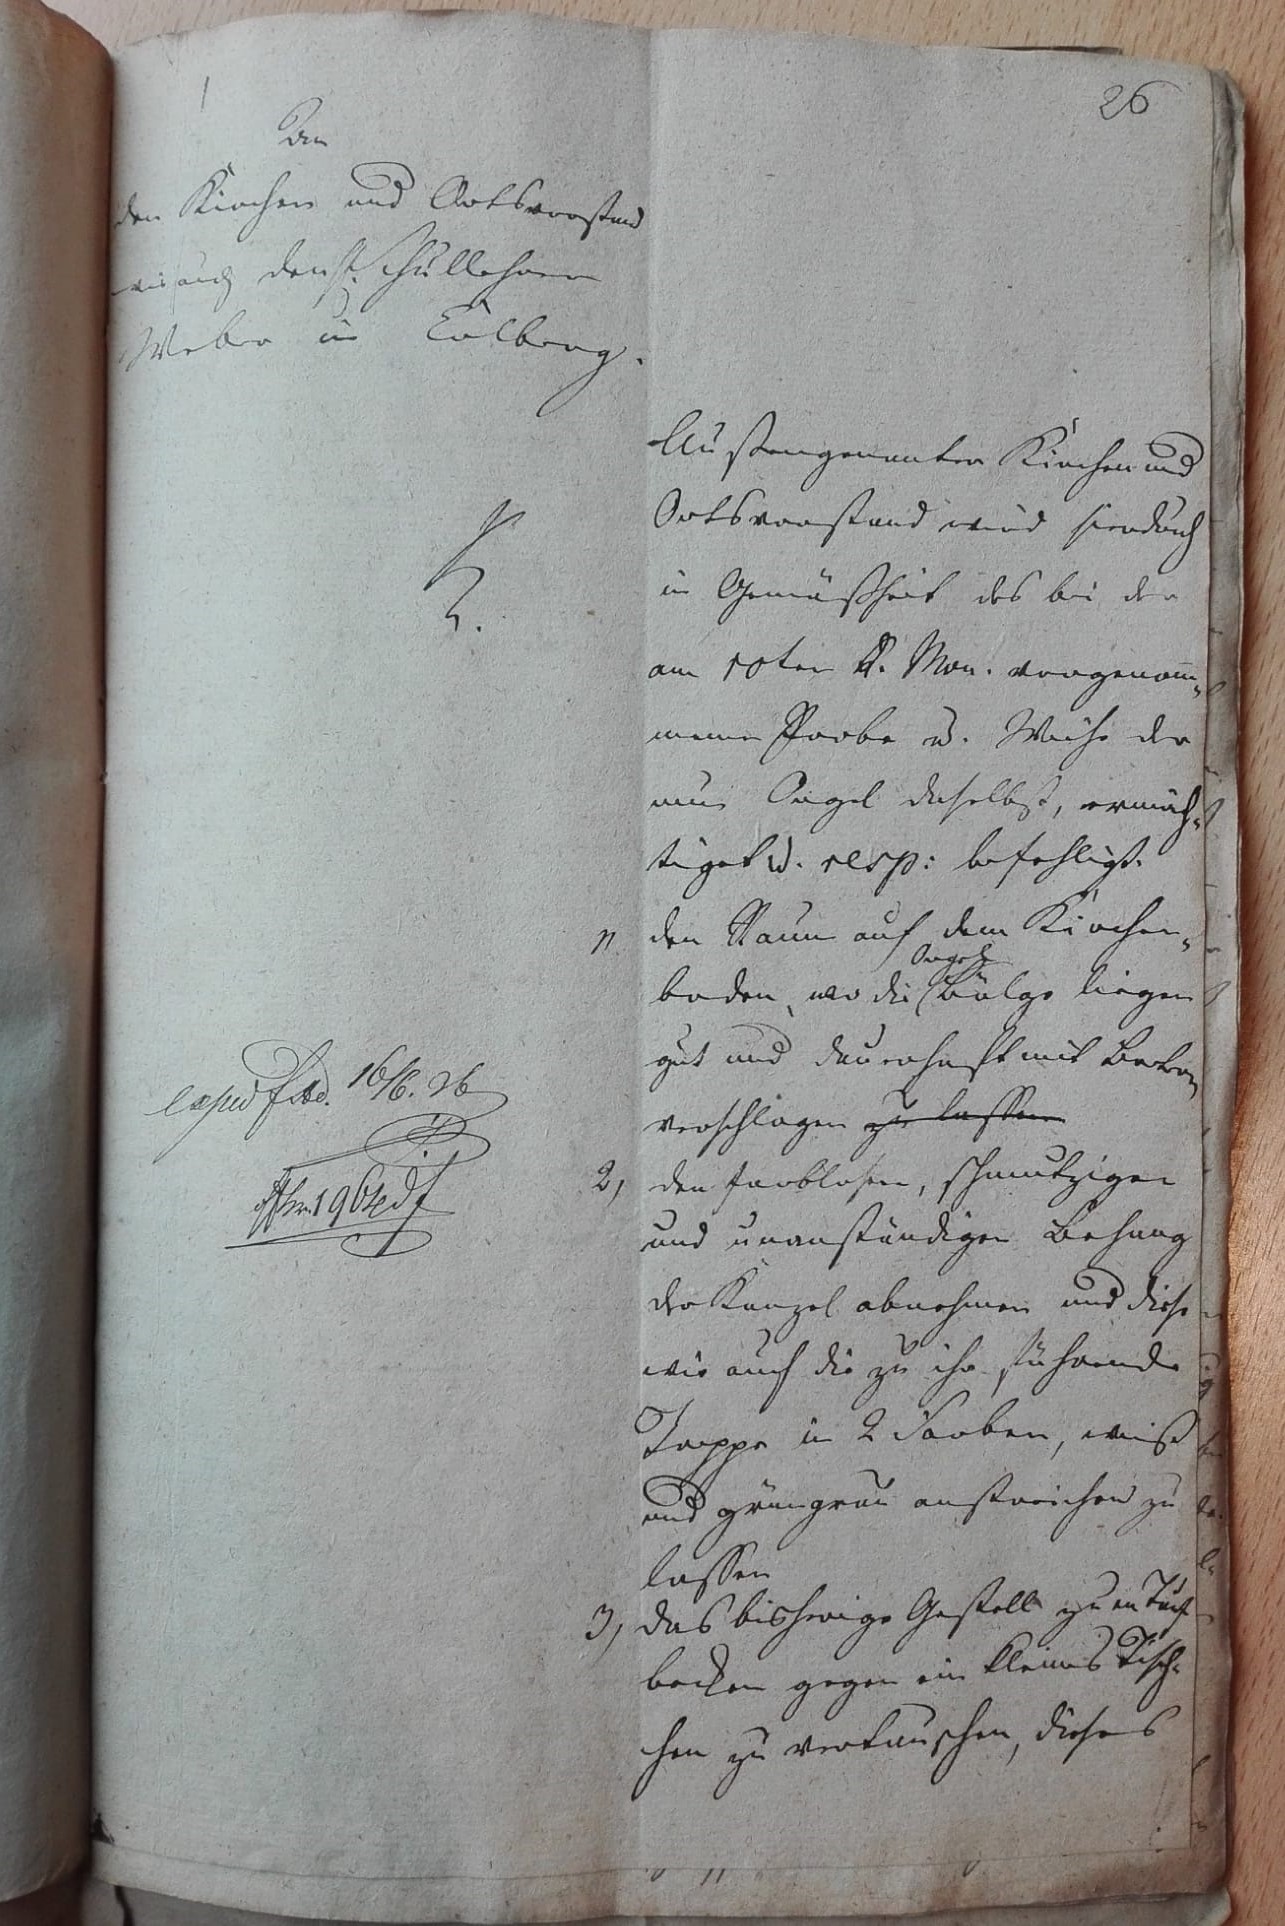 26
An
den Kirchen und Ortsvorstand
wie auch den H. Schullehrer
Weber in Colberg.
Außengenanter Kirchen und
Ortsvorstand wird hierdurch
in Gemäßheit des bei der
am 10ten d. Mon. vorgenom„
menen Probe u. Weihe der
neuen Orgel daselbst, ermäch„
tiget u. resp: befehligt.
1) den Raum auf dem Kirchen„
boden, wo die Orgel Bälge liegen
gut und dauerhaft mit Bretern
verschlagen zu lassen
2, den farblosen, schmutzigen
und unanständigen Behang
der Kanzel abnehmen und diese
wie auch die zu ihr führende
Treppe in 2 Farben, weiß
und grüngrau anstreichen zu
lassen
3, das bisherige Gestell zum Tauf
becken gegen ein kleines Tisch„
chen zu vertauschen, dieses
exped 16/6. 26